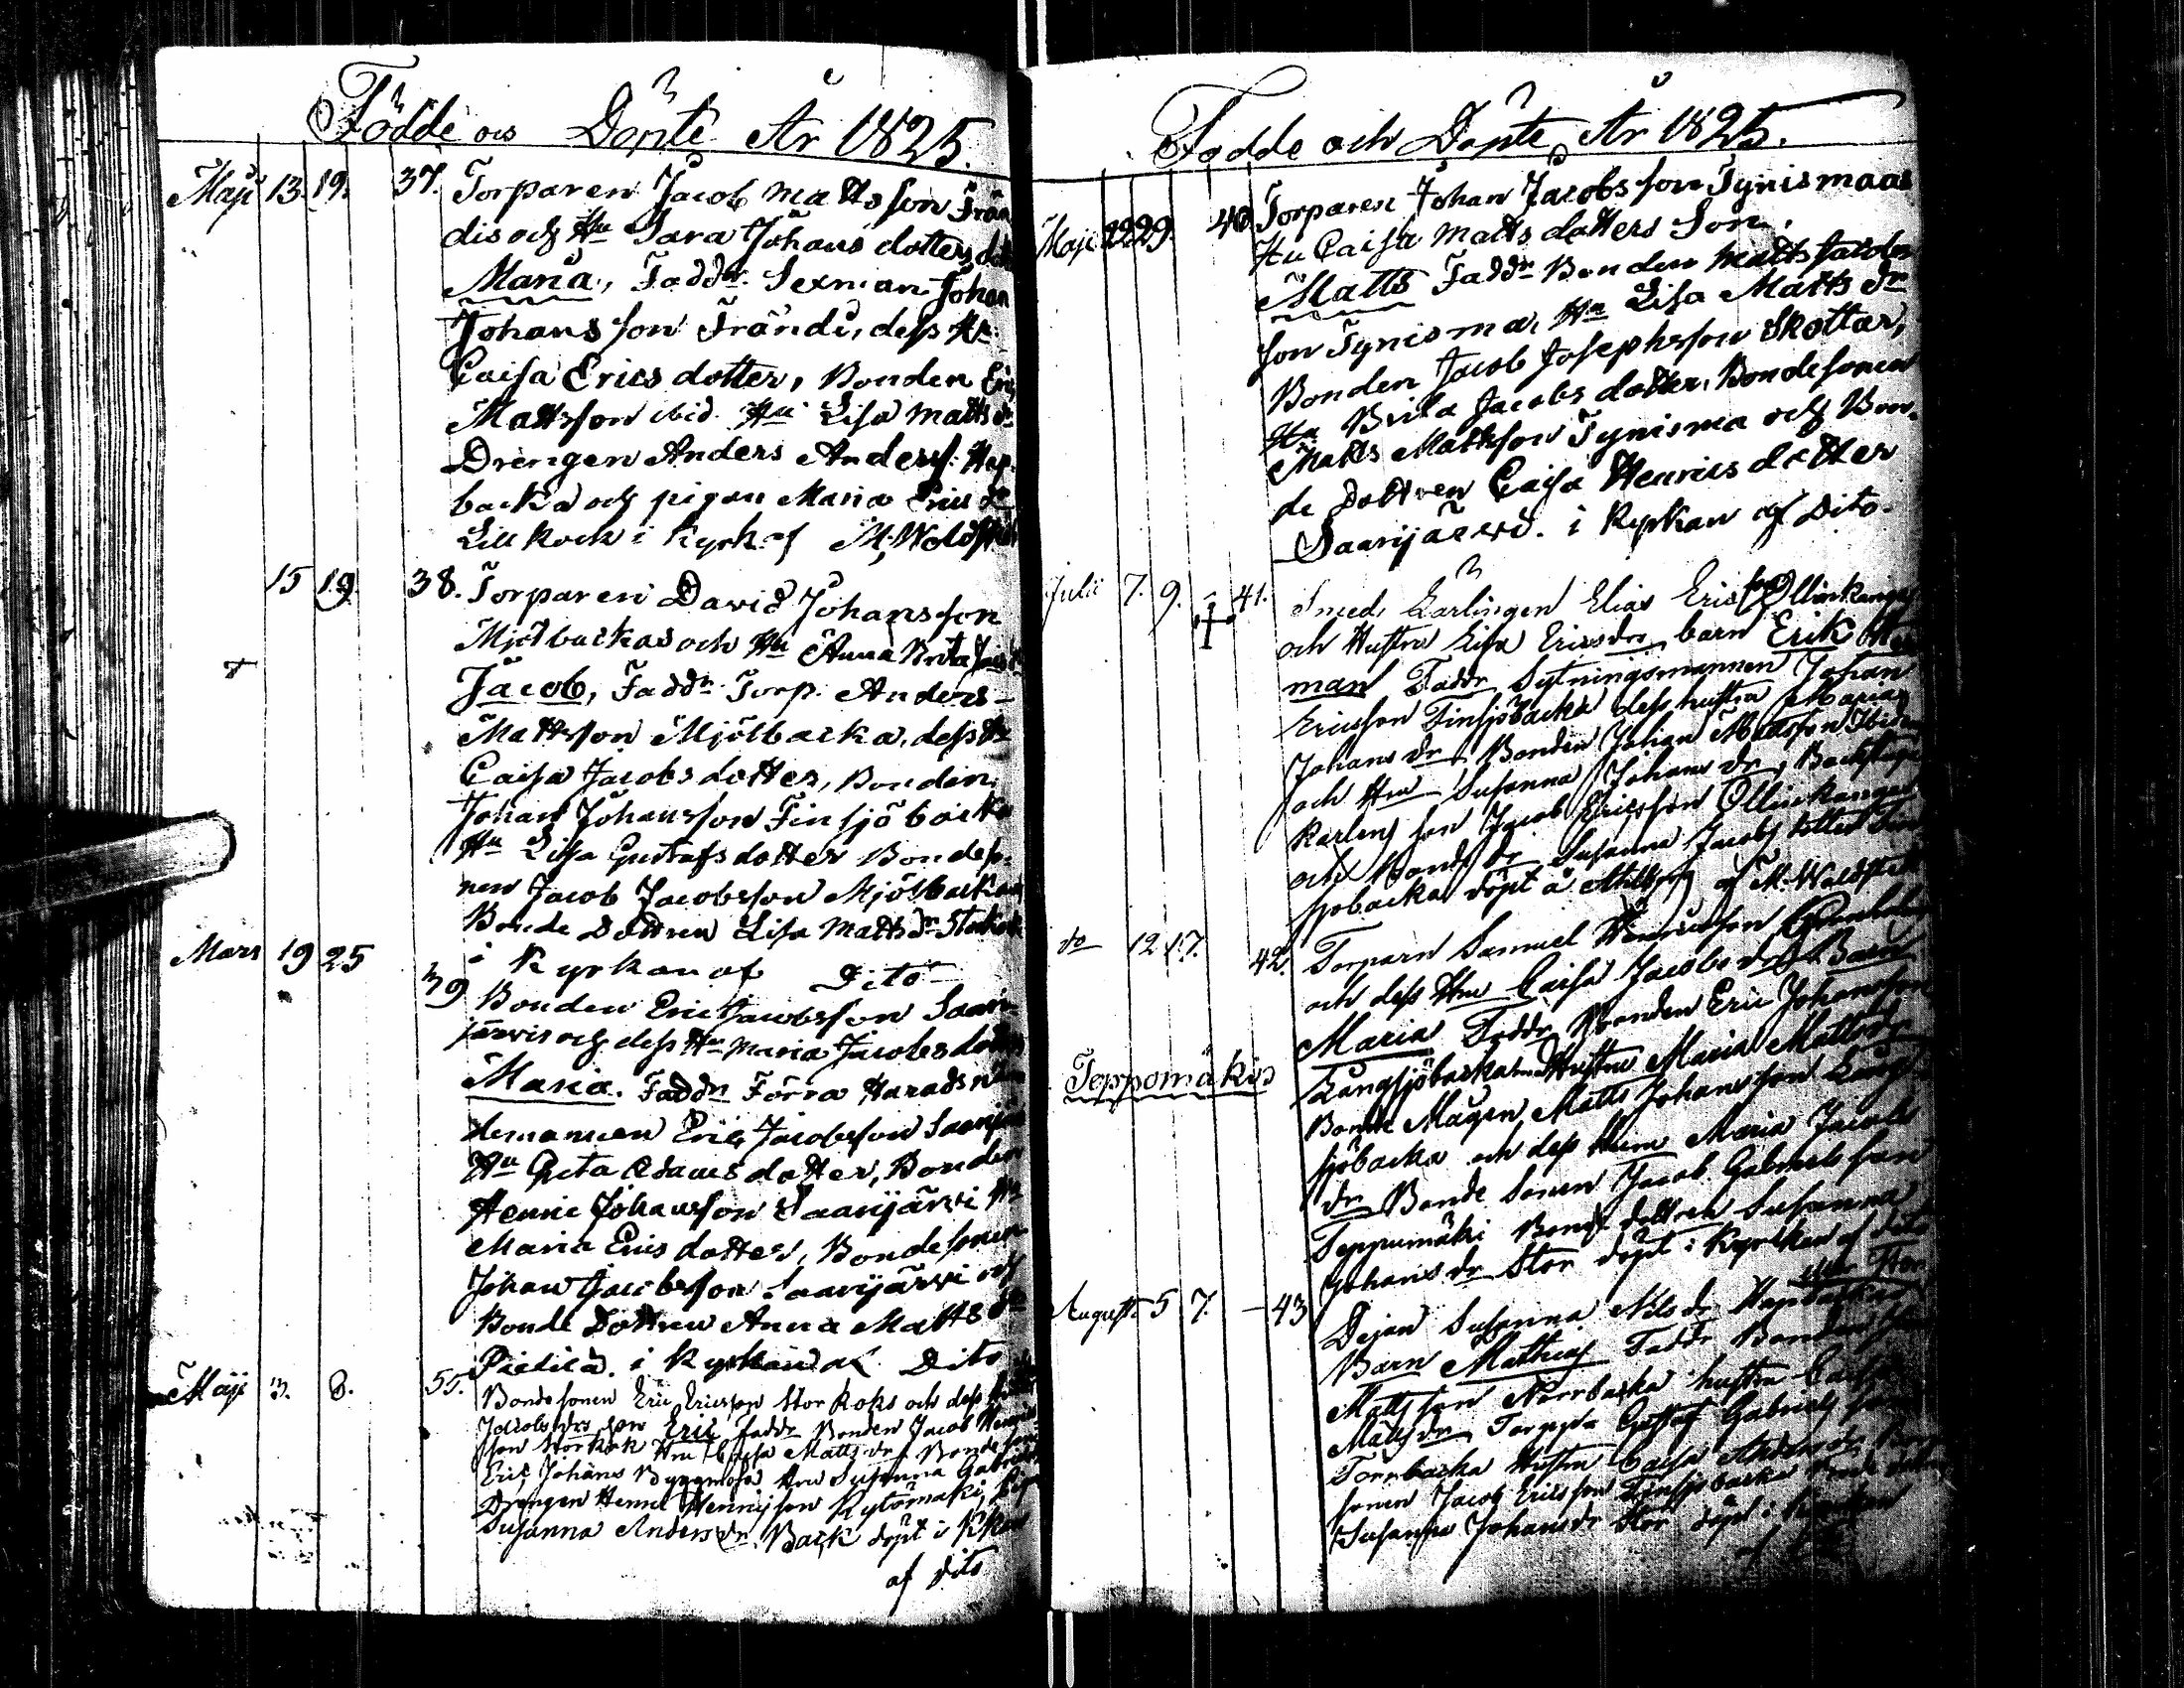 Födde och Döpte År 1825.
Maji 13. 19. 37. Torparen Jacob Mattsson Frän
dis och Hu Sara Johans dotters
Maria, Faddr. Sexman Johan
Johansson Frändi, dess Hu
Caisa Ericsdotter, Bonden Eric
Mattsson ibid. Hu Lisa Matts dr
Drengen Anders Anderss. Hap
backa och pigan Maria Erics dr
Lill Kock i Kyrk. af M. Woldst
15 19. 38. Torparen David Johansson
Mjölbackas och Hu Anna Brita
Jacob, Faddr Torp. Anders
Mattsson Mjölbacka, dess Hu
Caisa Jacobsdotter, Bonden
Johan Johansson Finsjöbacka
Hu Lisa Gustafsdotter Bondeso
nen Jacob Jacobsson Mjölbacka
Bonde Dottren Lisa Matts dr
i Kyrkan af Dito
Mars 19 25 39 Bonden Eric Jacobsson Saari
järvis och dess Hu Maria Jacobsdotters
Maria. Faddr Förra Härads
demannen Eric Jacobsson Saarijär
Hu Greta Adamsdotter, Bonden
Henric Johansson Saarijärvi Hu
Maria Ericsdotter, Bondesonen
Johan Jacobsson Saarijärvi och
Bonde Dottren Anna Matts dr
i Kyrkan af Dito
Maji 3. 8. 55. Bondesonen Eric Ericsson Storkoks och dess
Jacobs drs son Eric Faddr Bonden Jacob Henrics
son Storkok Hru Caisa Matts dr Bondeson
Eric Johans Byggmäsa Hru Susanna Gabriels
Drengen Henric Henricsson Kytömäki, Pig
Susanna Anders dr Back döpt i Kkan
af dito
Födde och Döpte År 1825.
Maji 22 29. 40 Torparen Johan Jacobsson Tynismaas
Hu Caisa Matts dotters Son
Matts Faddr Bonden Matts Jacobs
son Tynisma, Hu Lisa Matts dr
Bonden Jacob Josephsson Skottar,
Hu Brita Jacobs dotter, Bondesonen
Matts Mattsson Tynisma och Bon
de Dottren Caisa Henricsdotter
Saarijärvi. i Kyrkan af Dito.
Julii 7. 9. 41. Smeds Lärlingen Elias Ericss Ollinkangas
och Hustru Lisa Ericsdrs barn Erik
man Faddr Sytningsmannen Johan
Ericsson Finsjöbacka dess hustru Maria
Johans dr, Bonden Johan Mattsson Ibidem
och Hru Susanna Johans dr, Backstugu
karlens son Jacob Ericsson Ollinkangas
och Bonds dr Susanna Jacobs dotter Fin
sjöbacka döpt å af M. Woldst
do 12. 17. 42. Torparn Samuel Henricsson
och dess Hru Caisa Jacobs drs Barn
Maria Faddr Bonden Eric Johansson
Teppomäkis
Långsjöbacka Hustru Maria Matts dr
Bonde Mågen Matts Johansson Lång
sjöbacka och dess Hru Maria Jacobs
dr Bonde Sonen Jacob Gabrielsson
Teppumäki Bonde dottren Susanna
Johans dr Stor döpt i Kyrkan af dito
Augusti 5 7. 43 Dejan Susanna Nils dr Hapabackas
Barn Mathias Faddr Bonden
Mattsson Norrbacka hustru Caisa
Matts dr Gustaf Gabriels son
Törnbacka Hustru Caisa Anders dr
sonen Jacob Ericsson Finsjöbacka
Susanna Johans dr Stor döpt i Kyrkan